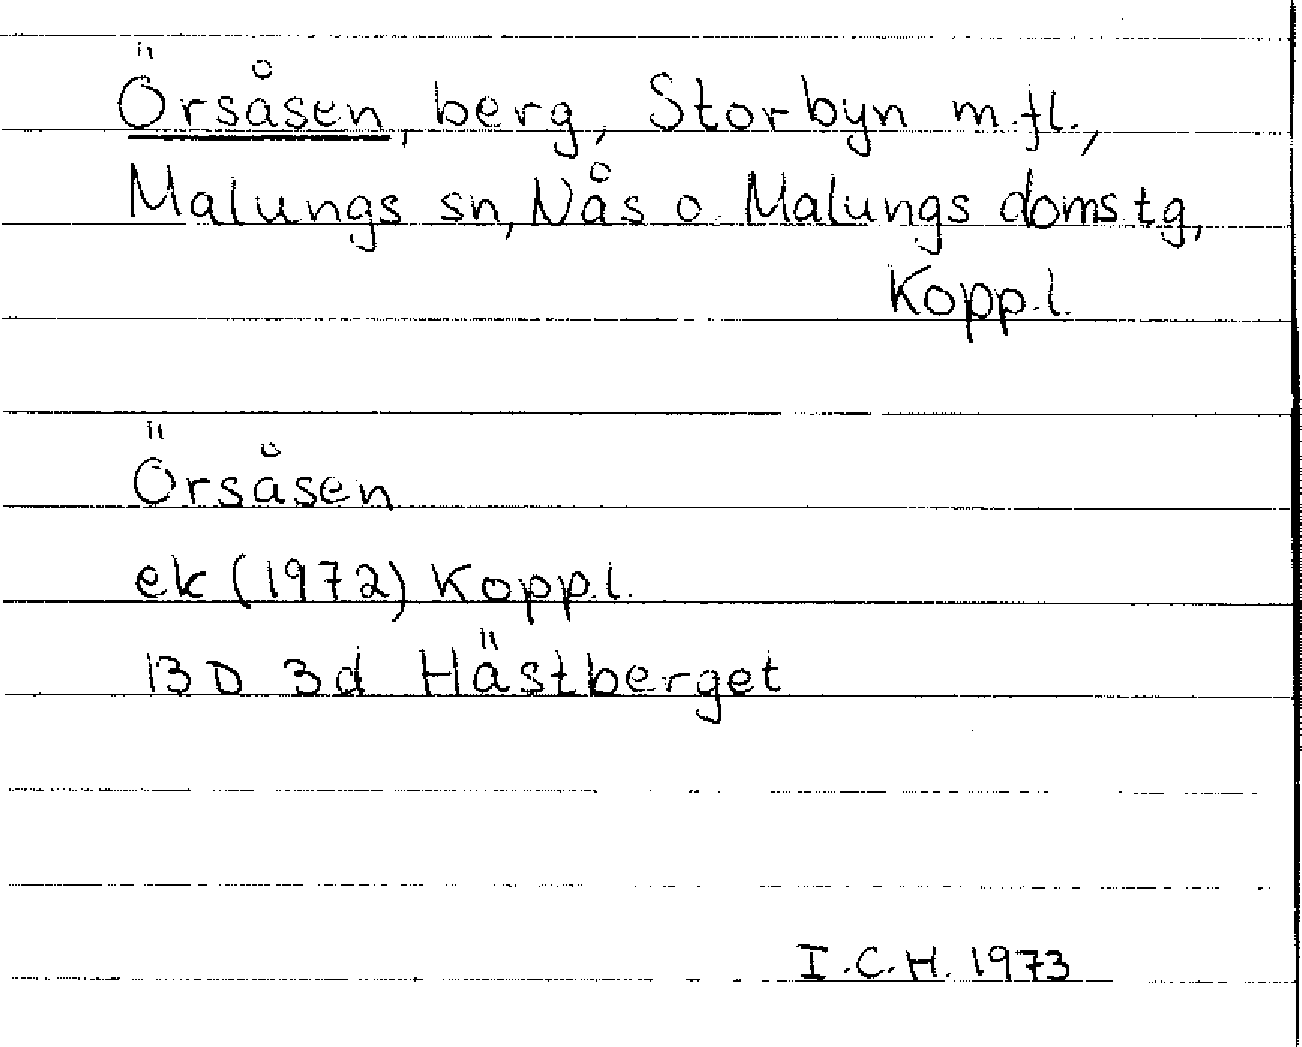 Örsåsen, berg, Storbyn m.fl.,
Malungs sn, Nås o. Malungs domstg,
Kopp.l.
Örsåsen
ek (1972) Kopp.l.
13 D 3d Hästberget
I.C.H. 1973